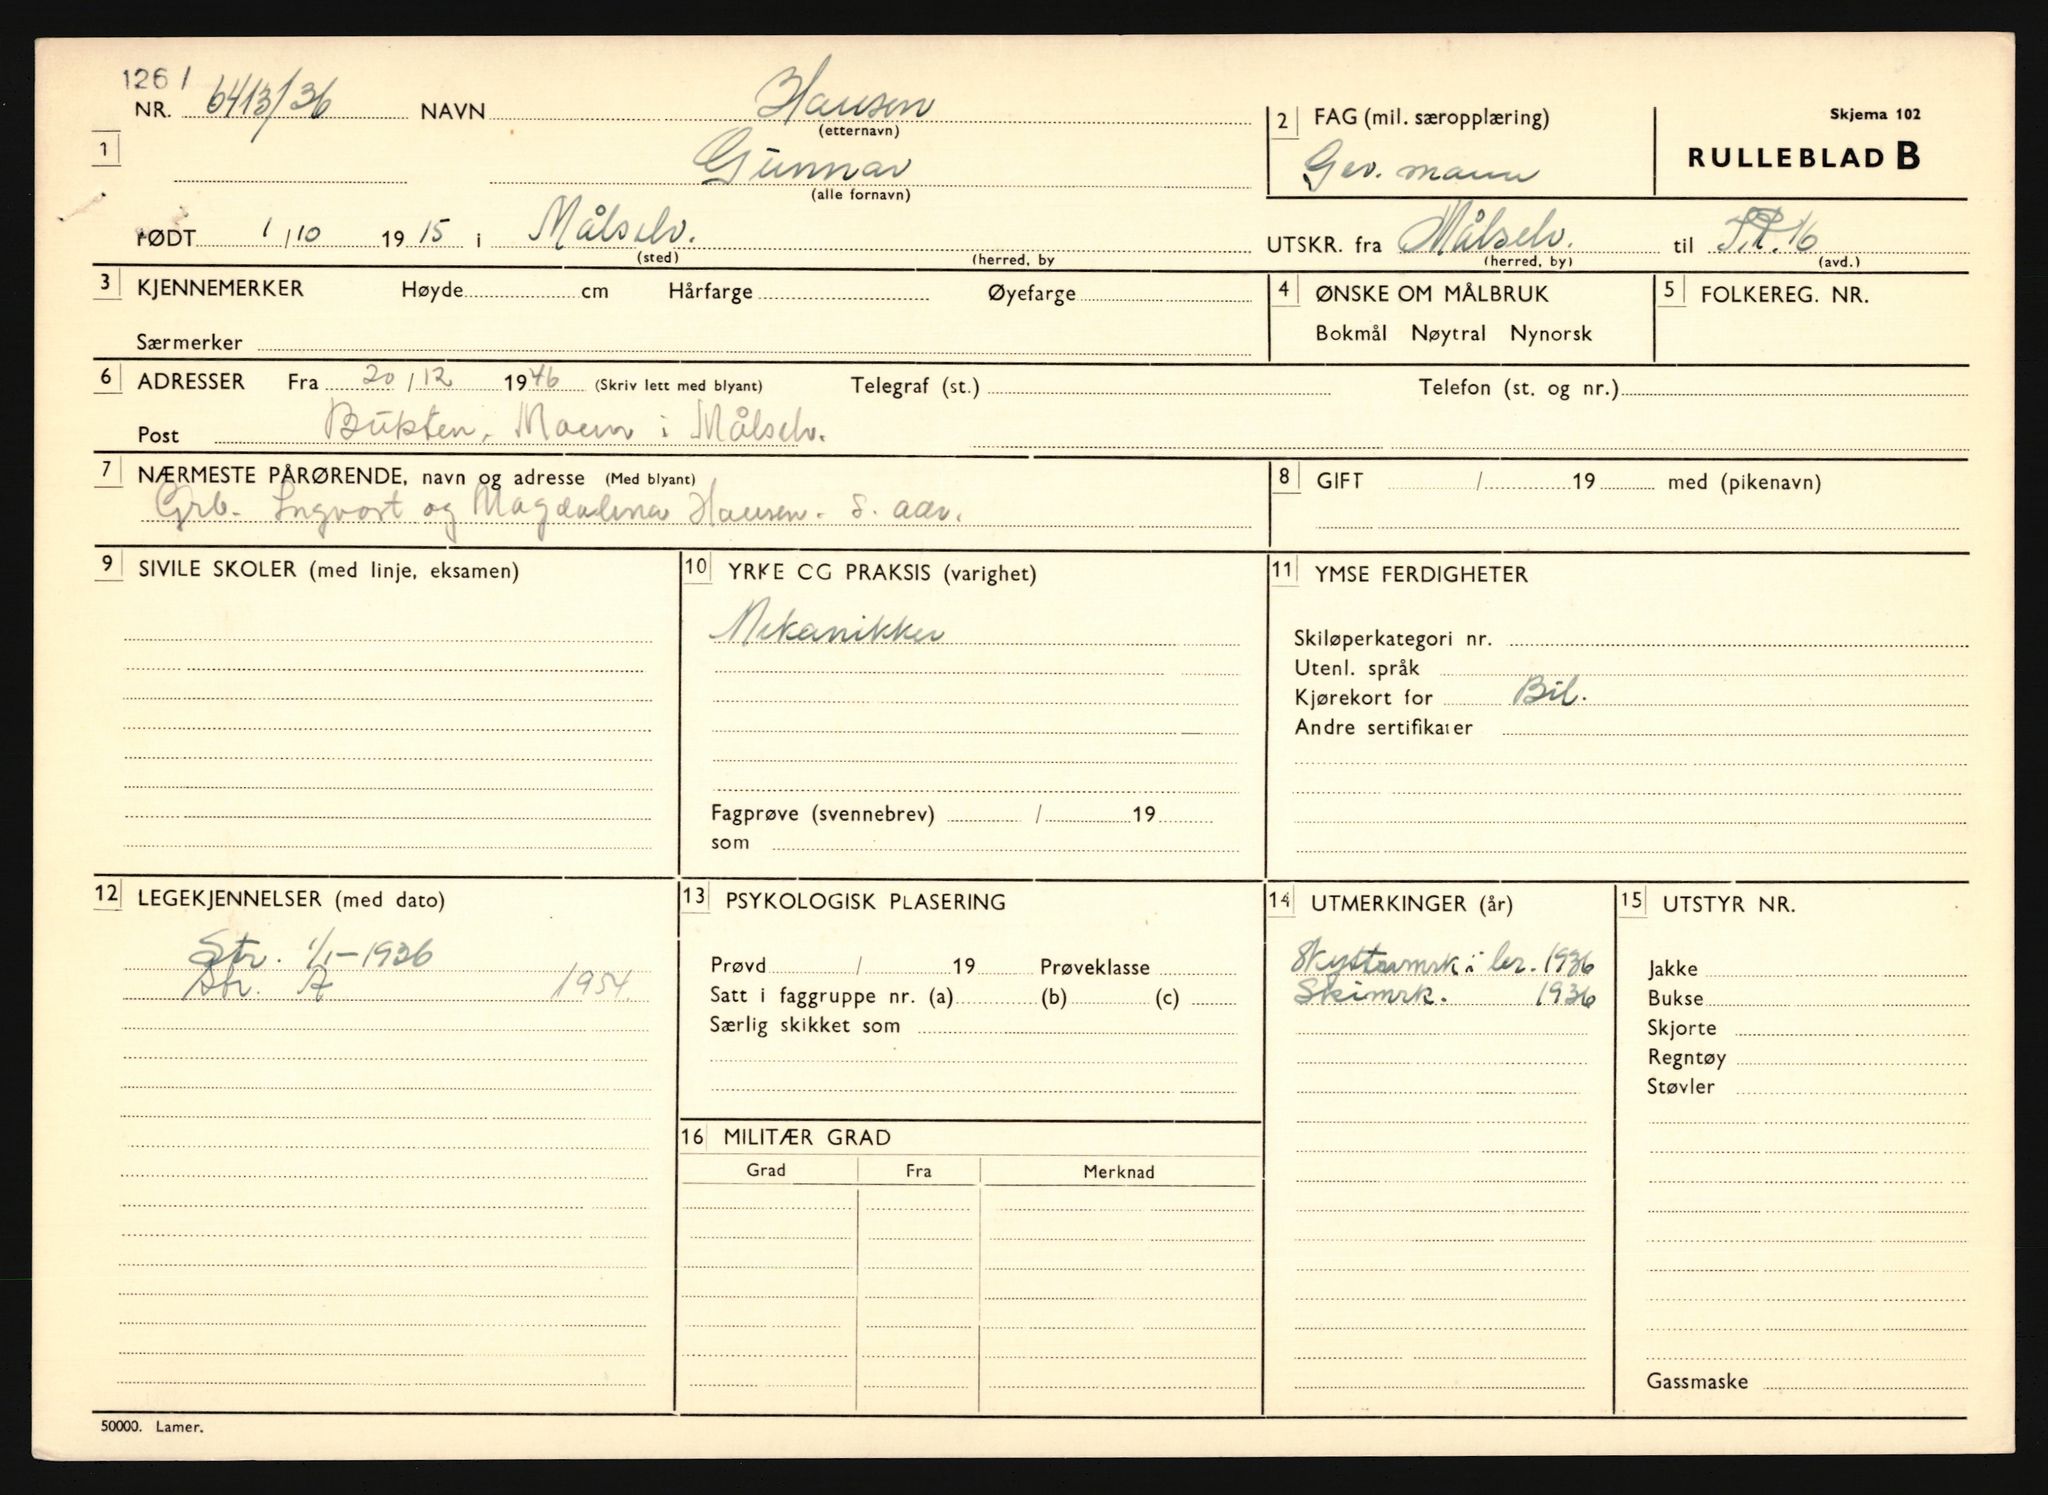 1261
NR. 6413/36 NAVN Hansen
(etternavn)
1 Gunnar
(alle fornavn)
2 FAG (mil. særopplæring)
Gev. mann
Skjema 102
RULLEBLAD B
FØDT 1/10 1915 i Målselv.
(sted) (herred, by
UTSKR. fra Målselv. til I.R. 16
(herred, by) (avd.)
3 KJENNEMERKER Høyde cm Hårfarge Øyefarge
Særmerker
4 ØNSKE OM MÅLBRUK
Bokmål Nøytral Nynorsk
5 FOLKEREG. NR.
6 ADRESSER Fra 20/12 1946 (Skriv lett med blyant) Telegraf (st.) Telefon (st. og nr.)
Post Bukten, Moen i Målselv.
7 NÆRMESTE PÅRØRENDE, navn og adresse (Med blyant)
Grb. Ingvart og Magdalena Hansen. s. adr.
8 GIFT / 19 med (pikenavn)
9 SIVILE SKOLER (med linje, eksamen)
10 YRKE OG PRAKSIS (varighet)
Mekanikker
Fagprøve (svennebrev) / 19
som
11 YMSE FERDIGHETER
Skiløperkategori nr.
Utenl. språk
Kjørekort for Bil.
Andre sertifikater
12 LEGEKJENNELSER (med dato)
Str. 1/1-1936
Str. A 1954.
13 PSYKOLOGISK PLASERING
Prøvd / 19 Prøveklasse
Satt i faggruppe nr. (a) (b) (c)
Særlig skikket som
14 UTMERKINGER (år)
Skyttermrk i br. 1936
Skimrk. 1936
15 UTSTYR NR.
Jakke
Bukse
Skjorte
Regntøy
Støvler
Gassmaske
16 MILITÆR GRAD
Grad Fra Merknad
50000. Lamer.